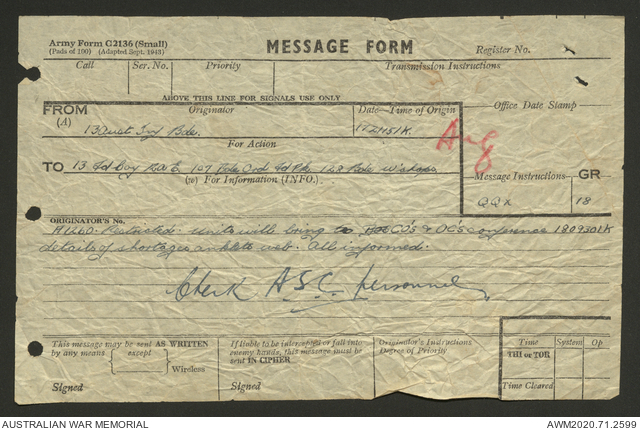 Army Form C2136 (Small)
(Pads of 100) (Adapted Sept. 1943)
MESSAGE FORM
Register No.
Call Ser. No. Priority Transmission Instructions
ABOVE THIS LINE FOR SIGNALS USE ONLY
FROM (A) Originator Date—Time of Origin Office Date Stamp
13 Aust Inf Bde.
For Action
TO 13 Fd Coy
(w) For Information (INFO.)
Message Instructions GR
QQX 18
ORIGINATOR'S No.
Restricted. Units will bring to CO's & OC's conference 180930K
details of shortages anklets web. All informed.
Clerk A.S.C. personnel
This message may be sent AS WRITTEN
by any means except
Wireless
Signed
If liable to be intercepted or fall into
enemy hands, this message must be
sent IN CIPHER
Signed
Originator's Instructions
Degree of Priority
Time System Op
THI or TOR
Time Cleared
AUSTRALIAN WAR MEMORIAL
AWM2020.71.2599